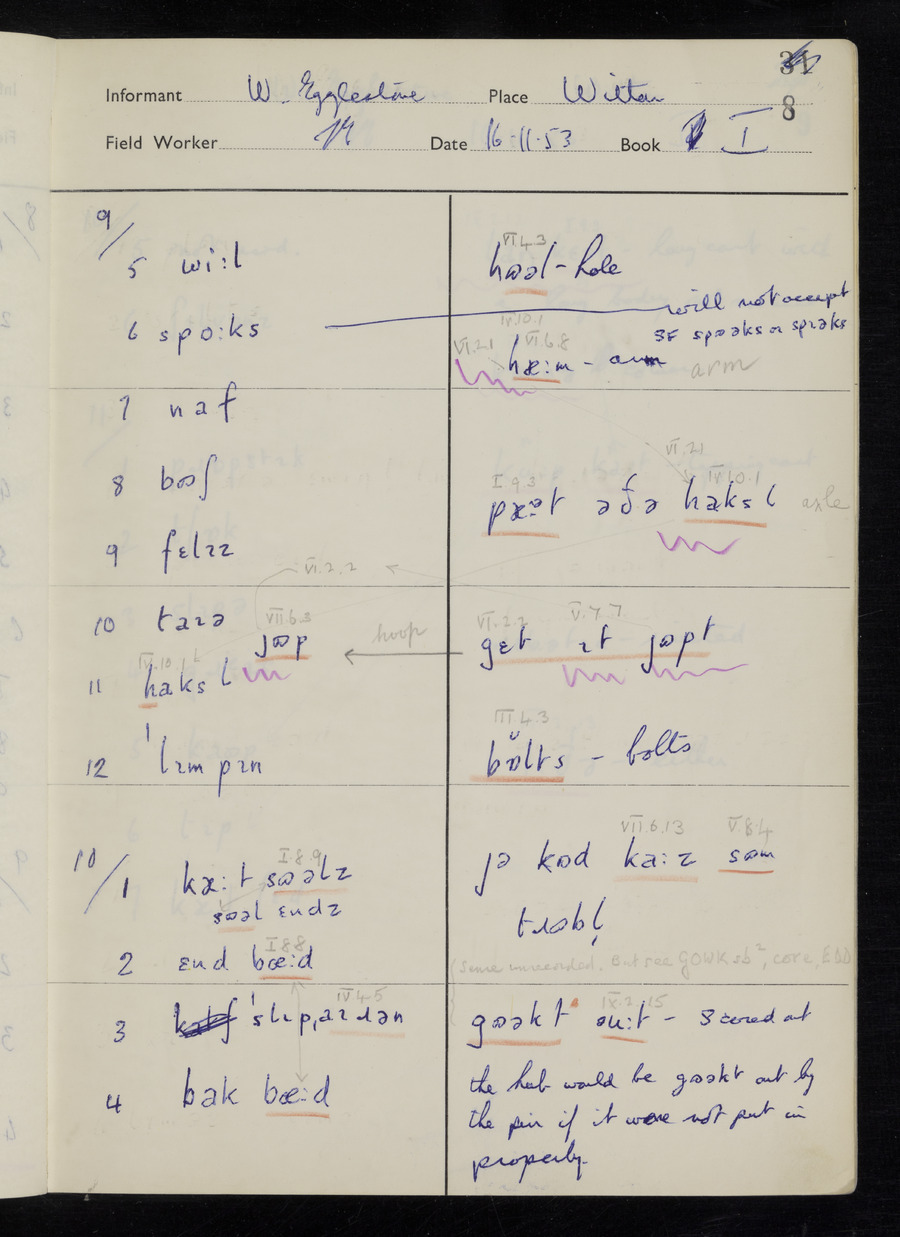 31
8
Informant W. Egglestone Place Witton
Field Worker Date 16-11-53 Book I
9/
5 wi:l
VI.4.3
hɷəl - hole
6 spo:ks
will not accept
SF spɷəks or sprəks
IV.10.1
VI.21 VI.6.8
hæ:m - arm arm
7 naf
8 bɷʃ
VI.21
I.9.3 IV.10.1
pæət əðə haksl axle
9 fɛlɪz
VI.2.2
10 taɪə
VII.6.3
jɷp
hoop
VI.2.2 V.7.7
gɛt ɪt jɷpt
IV.10.1
11 haksl
12 ˈlɪmpɪn
III.4.3
bɒ̈lts - bolts
10/
1 kæ:t sɷəlz
I.8.9
sɷəl ɛndz
VII.6.13 V.8.4
jə kɷd ka:ɪ sɷm
tɹɷbl̩
2 ɛnd bæ:d
I.8.8
Sense unrecorded. But see GOWK sb², core, EDD
3 ˈslɪpˌaɪɹən
IV.4.5
gɷəkt ɷu:t - scored out
IX.2.15
the hub would be gɷəkt out by
4 bak bæ:d
the pin if it were not put in
properly.